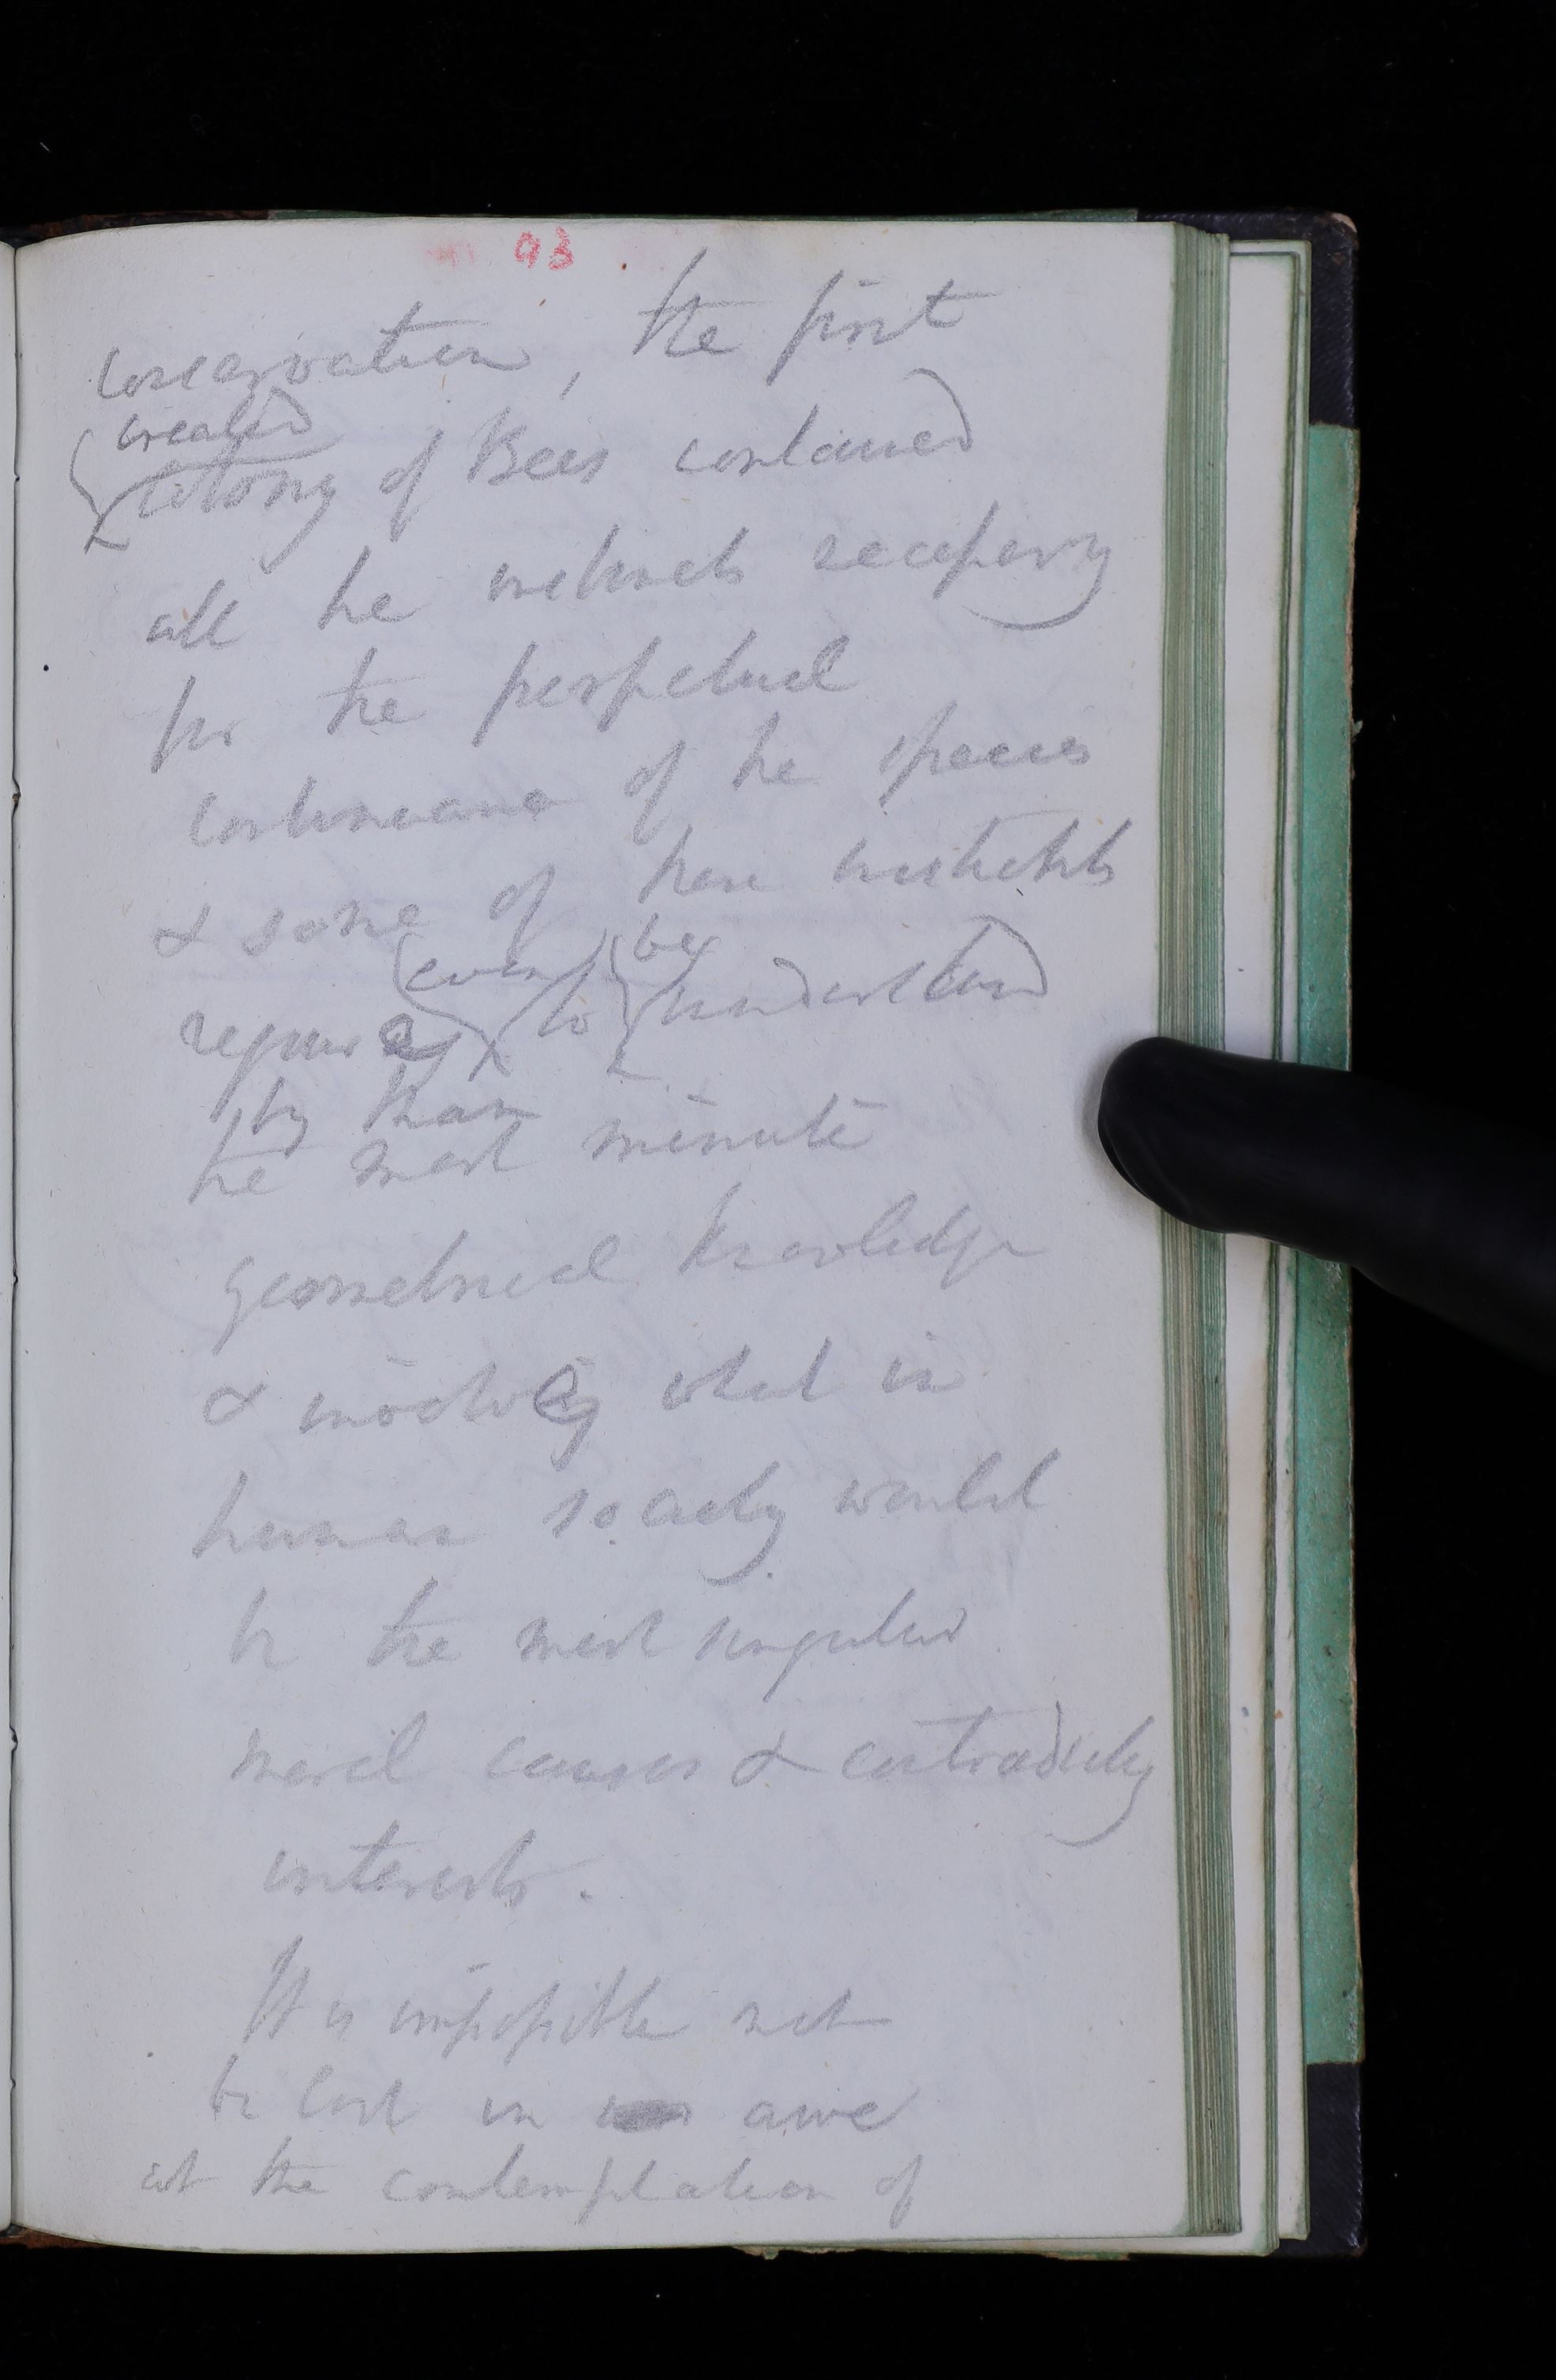 93
conservation, the first
created
colony of Bees contained
all the instincts necessary
for the perpetual
continuance of the species
& some of these instincts
requiring even to be understood
by man
the most minute
geometrical knowledge
& involving what in
human society would
be the most singular
moral causes & contradictory
interests.
It is impossible not
be lost in awe
at the contemplation of